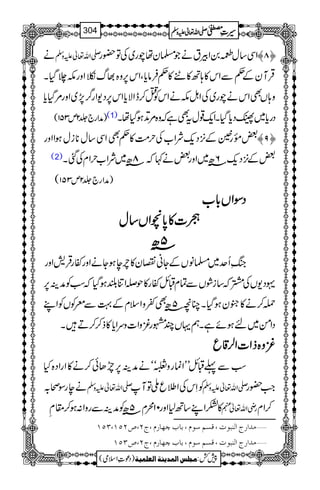 سیرتِ مصطفی صلی اللہ تعالیٰ علیہ وسلم 304
﴿۸﴾ اسی سال طعمہ بن ابیرق نے جو مسلمان تھا چوری کی تو حضور صلی اللہ تعالیٰ علیہ وسلم نے
قرآن کے حکم سے اس کا ہاتھ کاٹنے کا حکم فرمایا، اس پر وہ بھاگ نکلا اور مکہ چلا گیا۔
وہاں بھی اس نے چوری کی اہل مکہ نے اس کو قتل کر ڈالا یا اس پر دیوار گر پڑی اور مر گیا یا
دریا میں پھینک دیا گیا۔ ایک قول یہ بھی ہے کہ وہ مرتد ہو گیا تھا۔(1) (مدارج جلد۲ ص۱۵۳)
﴿۹﴾ بعض مؤرخین کے نزدیک شراب کی حرمت کا حکم بھی اسی سال نازل ہوا اور
بعض کے نزدیک ۶ھ میں اور بعض نے کہا کہ ۸ھ میں شراب حرام کی گئی۔(2)
(مدارج جلد۲ ص۱۵۳)
دسواں باب
ہجرت کا پانچواں سال
۵ھ
جنگِ اُحد میں مسلمانوں کے جانی نقصان کا چرچا ہو جانے اور کفار قریش اور
یہودیوں کی مشترکہ سازشوں سے تمام قبائل کفار کا حوصلہ اتنا بلند ہو گیا کہ سب کو مدینہ پر
حملہ کرنے کا جنون ہو گیا۔ چنانچہ ۵ھ بھی کفر و اسلام کے بہت سے معرکوں کو اپنے
دامن میں لئے ہوئے ہے۔ ہم یہاں چند مشہور غزوات و سرایا کا ذکر کرتے ہیں۔
غزوہ ذات الرقاع
سب سے پہلے قبائل "انمار و ثعلبہ" نے مدینہ پر چڑھائی کرنے کا ارادہ کیا
جب حضور صلی اللہ تعالیٰ علیہ وسلم کو اس کی اطلاع ملی تو آپ صلی اللہ تعالیٰ علیہ وسلم نے چار سو صحابہ
کرام رضی اللہ تعالیٰ عنہم کا لشکر اپنے ساتھ لیا اور ۱۰ محرم ۵ھ کو مدینہ سے روانہ ہو کر مقام
1......مدارج النبوت ، قسم سوم ، باب چهارم ، ج۲، ص۱۵۲، ۱۵۳
2......مدارج النبوت ، قسم سوم ، باب چهارم ، ج۲، ص۱۵۳
پیش کش: مجلس المدینۃ العلمیۃ (دعوتِ اسلامی)